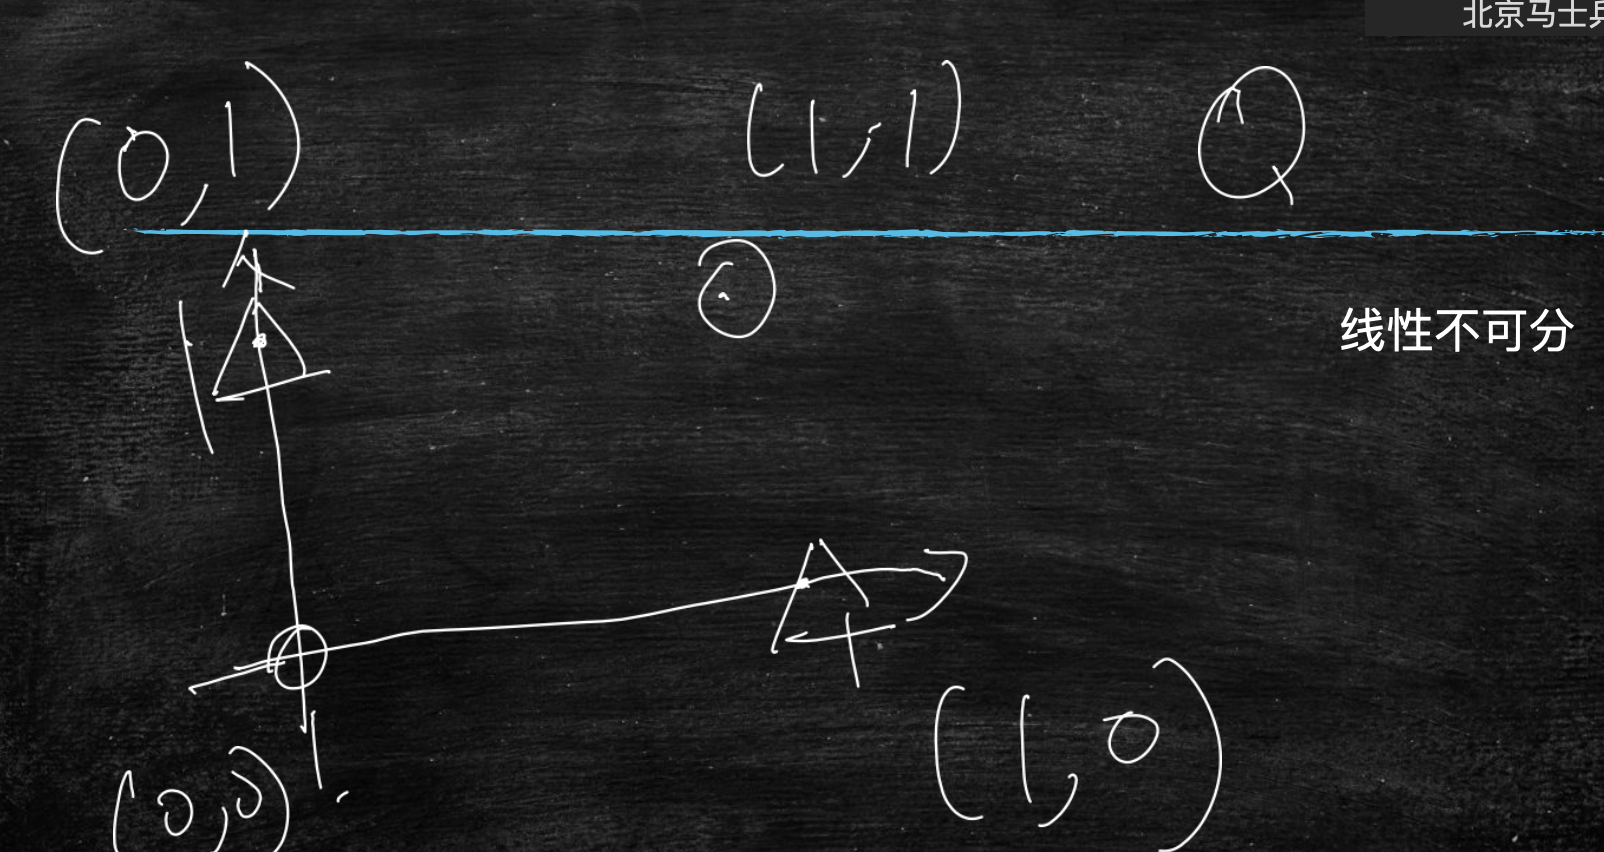 北京马士兵
(0,1)
(1,1)
Q
线性不可分
(1,0)
(0,0)